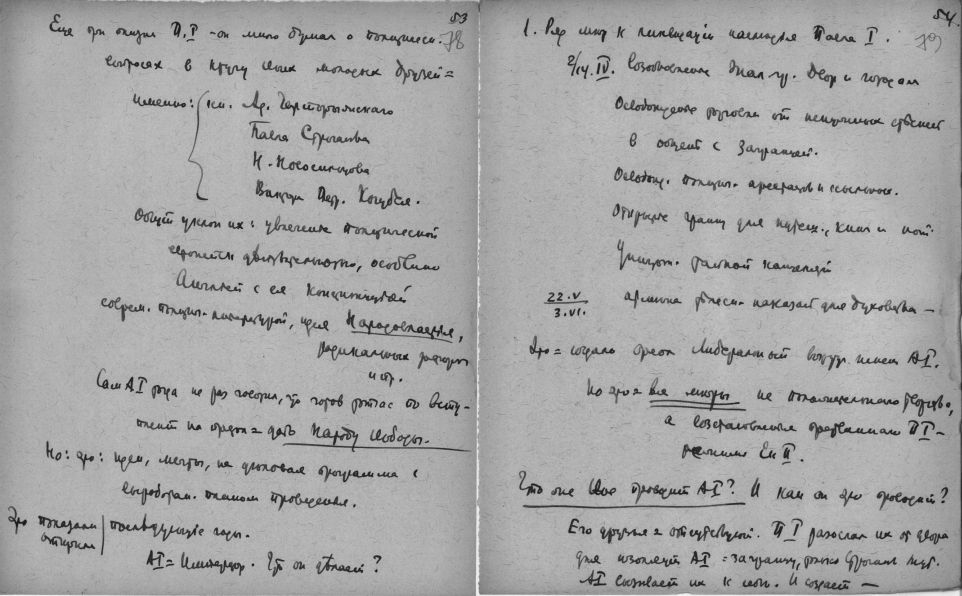 53
78
Еще при жизни П. I - он много думал о политическ.
вопросах в кругу своих молодых друзей =
именно: кн. Ад. Чарторыжского
Павла Строганова
Н. Новосильцова
Виктора Кочубея.
Общий уклон их: увлечение политической
европейск. действительностью, особенно
Англией с ея Конституцией
соврем. политич. литературой, идея Народовластия,
радикальных реформ
и пр.
Сам А I тогда не раз говорил, что готов тотчас по всту-
плении на престол = дать Народу свободы.
Но: это: идеи, мечты, не деловая программа с
выработан. планом проведения.
Это показали последующие годы.
А I = Император. Что он делает?
54.
79
1. Ряд мер к ликвидации наследия Павла I.
2/14. IV. Возобновление Жал. гр. Двор. и городам
Освобождение торговли от излишних стеснен.
в общен. с Заграницей.
Освобожд. политич. арестантов и ссыльных.
Открыт границ для путеш., книг и нот
Уничтож. тайной канцелярии
22.V
3.VI.
отмена телесн. наказан. для духовенства —
Это = создало ореол либеральный вокруг имени А I.
Но это = все меры не положительного творчества,
а восстановление прежнего П I -
режима Ек II.
Что же Свое проводит А I? И как он это проводит?
Его друзья = отсутствуют. П I разослал их от двора
для изоляции А I = заграницу, только Строганов
А I вызывает их к себе. И создает —